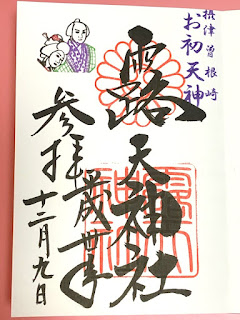 摂津曽根崎
お初天神
露天神社
参拝
平成卅年
十二月九日